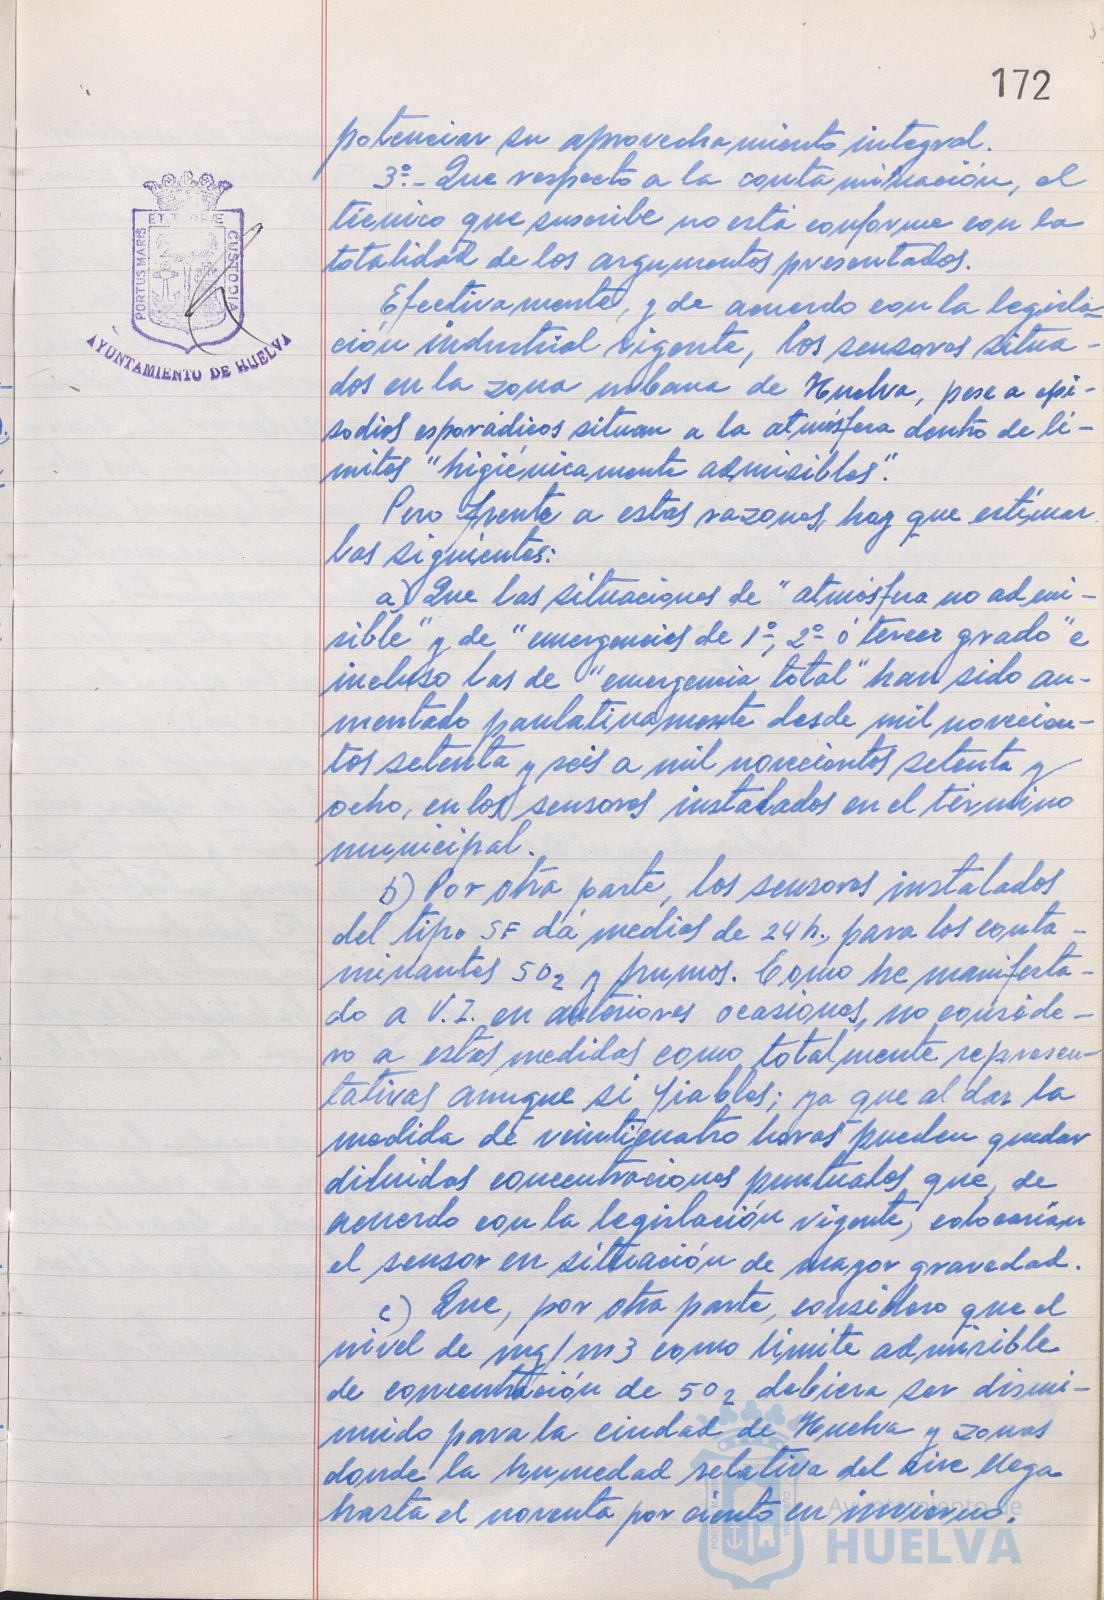 172
potenciar su aprovechamiento integral.
3º.- Que respecto a la contaminación, el
técnico que suscribe no está conforme con la
totalidad de los argumentos presentados.
Efectivamente, y de acuerdo con la legisla-
ción industrial vigente, los sensores situa-
dos en la zona urbana de Huelva, pese a epi-
sodios esporádicos situan a la atmósfera dentro de lí-
mites "higiénicamente admisibles".
Pero frente a estas razones, hay que estimar
las siguientes:
a) Que las situaciones de "atmósfera no admi-
sible" y de "emergencias de 1º, 2º ó tercer grado" e
incluso las de "emergencia total" han sido au-
mentado paulativamente desde mil novecien-
tos setenta y seis a mil novecientos setenta y
ocho, en los sensores instalados en el término
municipal.
b) Por otra parte, los sensores instalados
del tipo SF dá medias de 24 h., para los conta-
minantes SO2 y humos. Como he manifesta-
do a V.I. en anteriores ocasiones, no conside-
ro a estas medidas como totalmente represen-
tativas aunque si fiables; ya que al dar la
medida de veinticuatro horas pueden quedar
diluidas concentraciones puntuales que, de
acuerdo con la legislación vigente, colocarían
el sensor en situación de mayor gravedad.
c) Que, por otra parte, considero que el
nivel de mg/m3 como límite admisible
de concentración de SO2 debiera ser dismi-
nuido para la ciudad de Huelva y zonas
donde la humedad relativa del aire llega
hasta el noventa por ciento en invierno.
PORTUS MARIS
ET TERRAE
CUSTODIA
AYUNTAMIENTO DE HUELVA
Ayuntamiento de
HUELVA